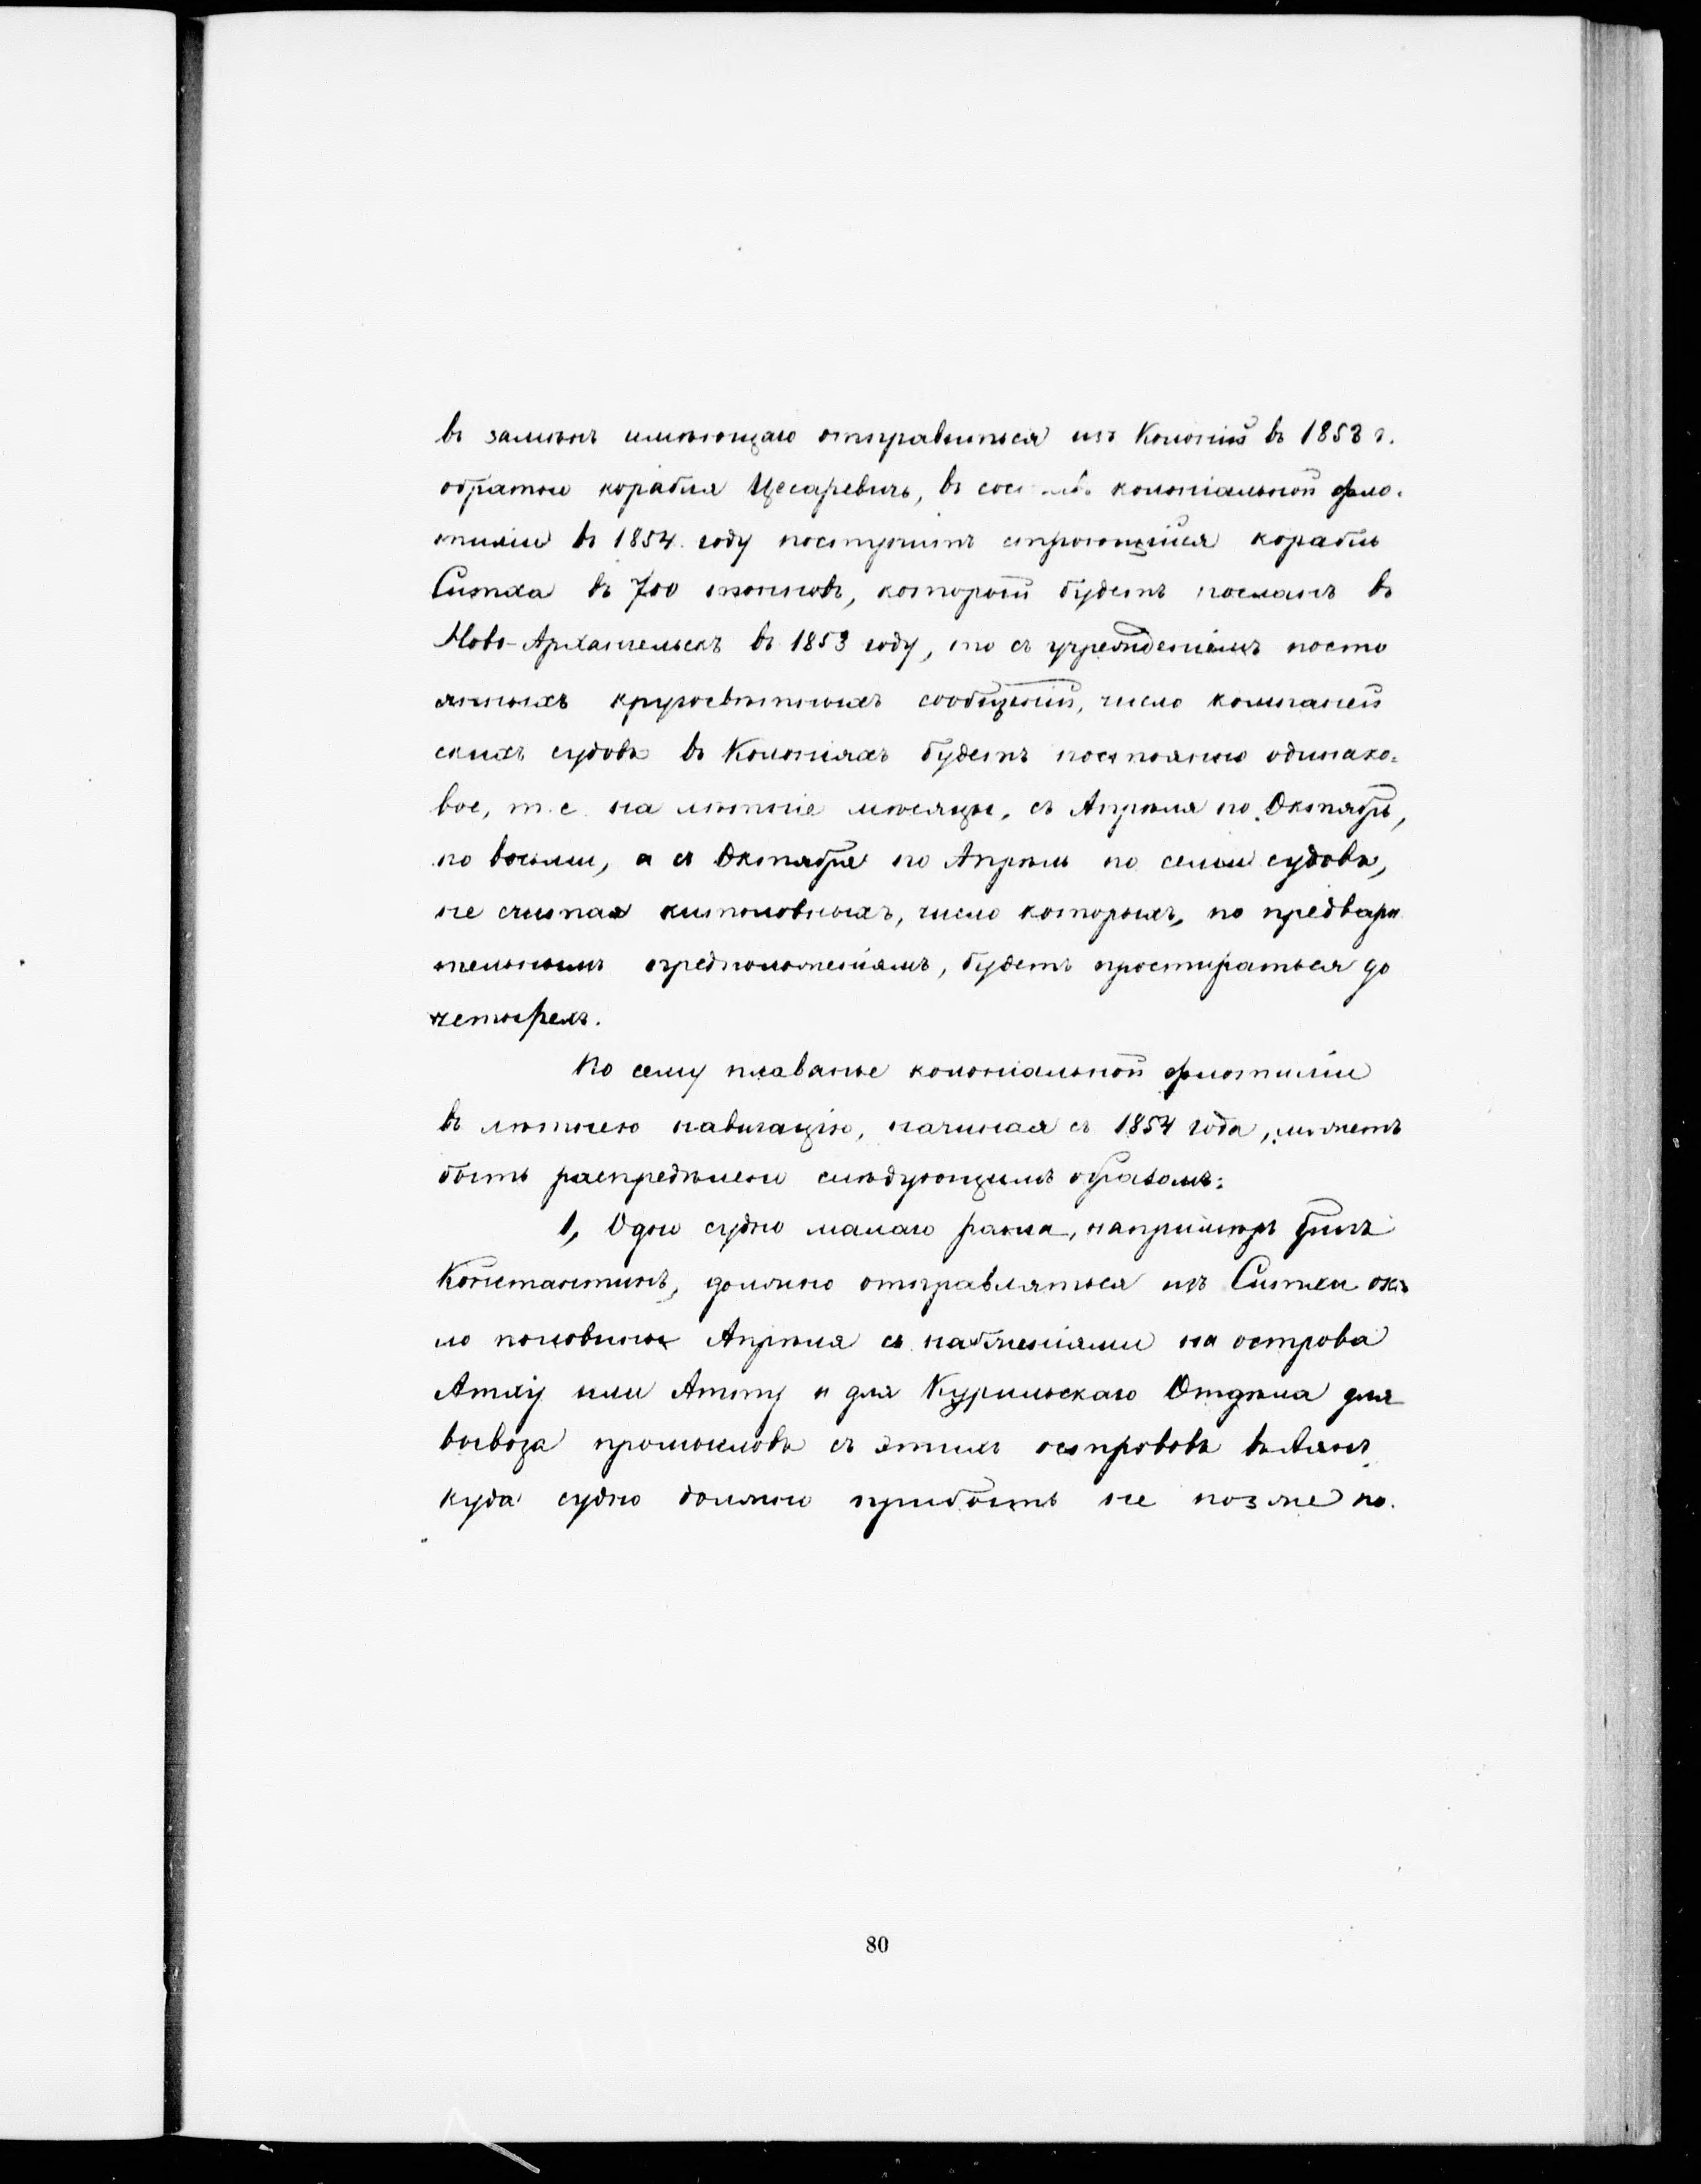 въ замѣнъ имѣющаго отправиться изъ Колоній въ 1853 г.
обратно корабля Цесаревичъ, въ составъ колоніальной фло-
тиліи въ 1854 году поступитъ строющійся корабль
Ситха въ 700 тонновъ, который будетъ посланъ въ
Ново-Архангельскъ въ 1853 году, то съ учрежденіемъ посто
янныхъ кругосвѣтныхъ сообщеній, число компаней
скихъ судовъ въ Колоніяхъ будетъ постоянно одинако-
вое, т.е. на лѣтніе мѣсяцы, съ Апрѣля по Октябрь,
по восьми, а съ Октября по Апрѣль по семи судовъ,
не считая китоловныхъ, число которыхъ, по предвари
тельнымъ предположеніямъ, будетъ простираться до
четырехъ.
По сему плаванье колоніальной флотиліи
въ лѣтнею навигацію, начиная съ 1854 года, можетъ
быть распредѣлено слѣдующимъ образомъ:
1, Одно судно малаго ранга, напримѣръ бригъ
Константинъ, должно отправляться изъ Ситхи око
ло половины Апрѣля съ снабженіями на острова
Атху или Атту и для Курильскаго Отдѣла для
вывоза промысловъ съ этихъ острововъ въ Аянъ,
куда судно должно прибыть не позже по-
80